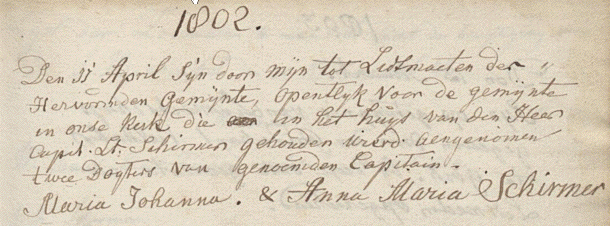 1802.
Den 11 April Syn door mijn tot Lidtmaeten der
Hervormden Gemijnte, Opentlyk voor de gemijnte
in onse Kerk die in het huijs van den Heer
Capit. Lt. Schirmer gehouden wierd aengenomen
twee Dogters van genoemden Capitain.
Maria Johanna. & Anna Maria Schirmer